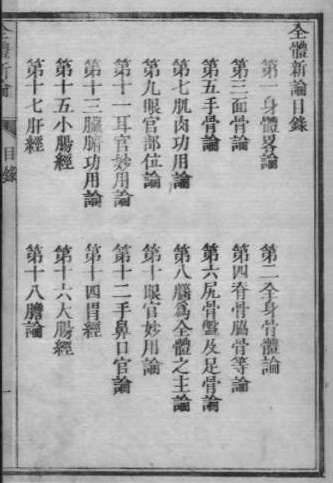 全體新論目錄
第一身體畧論
第二全身骨體論
第三面骨論
第四脊骨脇骨等論
第五手骨論
第六尻骨盤及足骨論
第七肌肉功用論
第八腦爲全體之主論
第九眼官部位論
第十眼官妙用論
第十一耳官妙用論
第十二手鼻口官論
第十三臟腑功用論
第十四胃經
第十五小腸經
第十六大腸經
第十七肝經
第十八膽論
全體新論
目錄
一